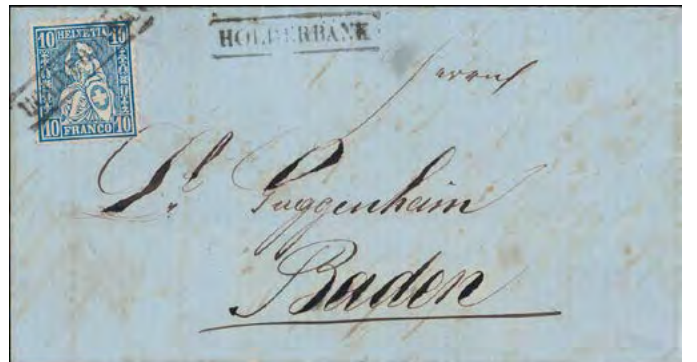 10 HELVETIA 10
10 FRANCO 10
HOLDERBANK
Herrn
Guggenheim
Baden